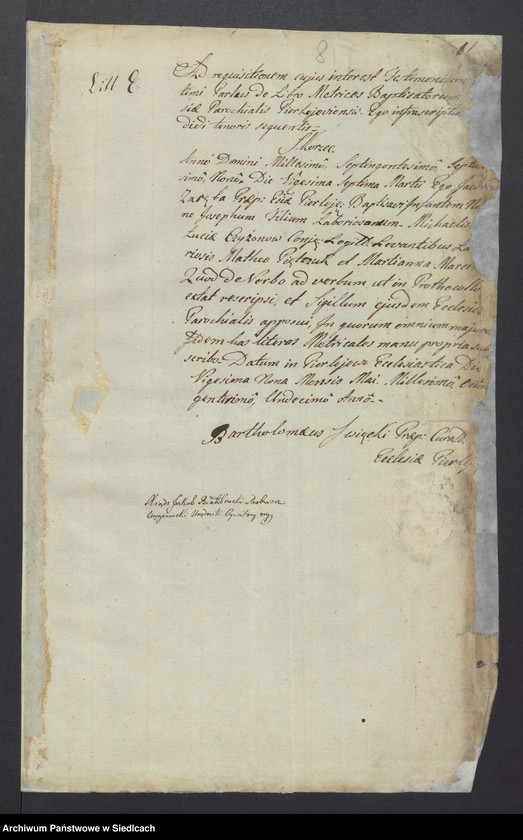 8
Litt E.
Ad requisitionem cujus interest Testimonium
timi Partus de Libro Metrices Baptisatorum
siæ Parochialis Pierlejoviensis Ego infrascriptus
didi tenoris sequentis
Skorzec
Anno Domini Millesimô, Septingentesimô, Septu
simô, Nonô, Die Vigesima Septima Martii Ego
Zaręba Præp: Eñæ Pierleje: Baptisavi Infantem No
ne Josephum Filium Laboriosorum Michaelis
Luciæ Czyżonow Conju: Legitt: Levantibus La
riosis Matheo et Martianna
Quod de Verbo ad verbum, ut in Prothocollo
extat rescripsi, et Sigillum ejusdem Ecclesiæ
Parochialis apposui, In quorum omnium majorem
Fidem has literas Metricales manu propria sub
scribo. Datum in Pierlejewo Ecclesiastica Die
Vigesima Nona Mensis Mai. Millesimô, Octin
gentesimô, Undecimô Annô.
Bartholomæus Święcki Præp: Curatt
Ecclesiæ Pierlej
Xiądz Jakub
Urzędnik Cywilny
Archiwum Państwowe w Siedlcach